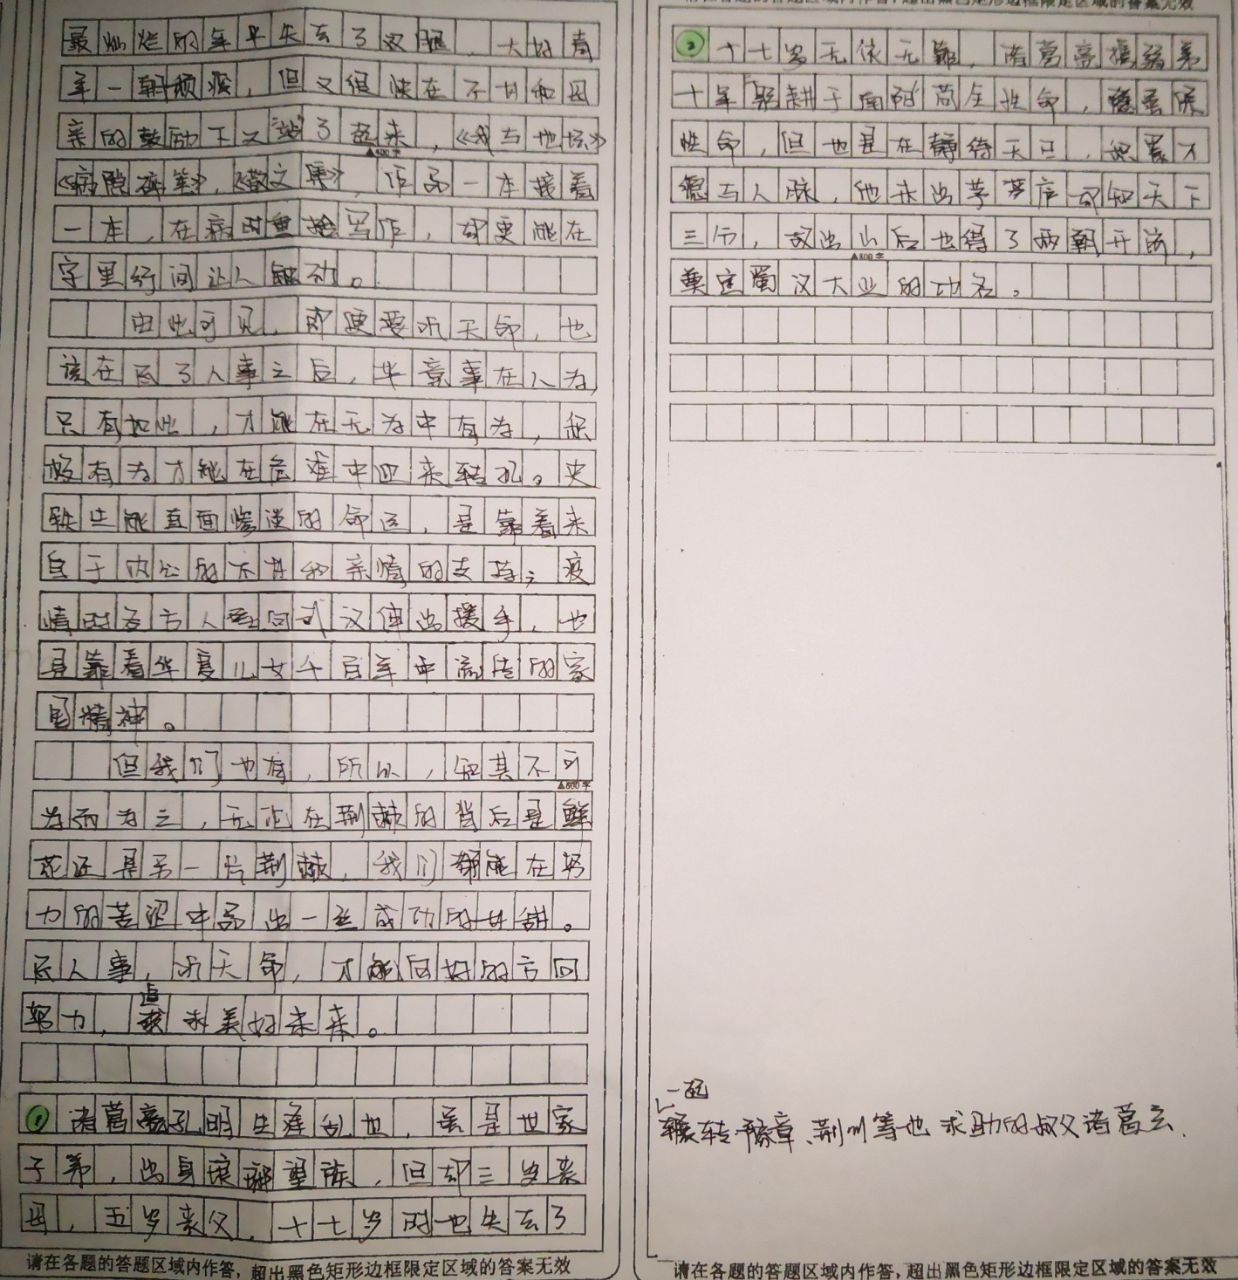 最灿烂的年华失去了双腿，大好青
年一朝颓废，但又很快在不甘和母
亲的鼓励下又"站"了起来，《我与地坛》
▲600字
《病隙碎笔》，《散文集》作品一本接着
一本，在病时重拾写作，却更能在
字里行间让人感动。
由此可见，即便要听天命，也
该在尽了人事之后，毕竟事在人为，
只有如此，才能在无为中有为，积
极有为才能在危难中迎来转机。史
铁生能直面惨淡的命运，是靠着来
自于内心的不甘和亲情的支持；疫
情时各方人士向武汉伸出援手，也
是靠着华夏儿女千百年中流传的家
国精神。
但我们也有，所以，知其不可
▲800字
为而为之，无论在荆棘的背后是鲜
花还是另一片荆棘，我们都能在努
力的苦涩中品出一丝成功的甘甜。
尽人事，听天命，才能向好的方向
努力，追求美好未来。
① 诸葛亮孔明生逢乱世，虽是世家
子弟，出身琅琊望族，但却三岁丧
母，五岁丧父，十七岁时也失去了
请在各题的答题区域内作答，超出黑色矩形边框限定区域的答案无效
请在各题的答题区域内作答，超出黑色矩形边框限定区域的答案无效
② 十七岁无依无靠，诸葛亮携弱弟
十年躬耕于南阳苟全性命，
性命，但也是在静待天时，积累才
德与人脉，他未出茅芦庐而知天下
三分，故出山后也得了两朝开济，
▲800字
奠定蜀汉大业的功名。
一起
辗转豫章、荆州等地求助的叔父诸葛玄.
请在各题的答题区域内作答，超出黑色矩形边框限定区域的答案无效